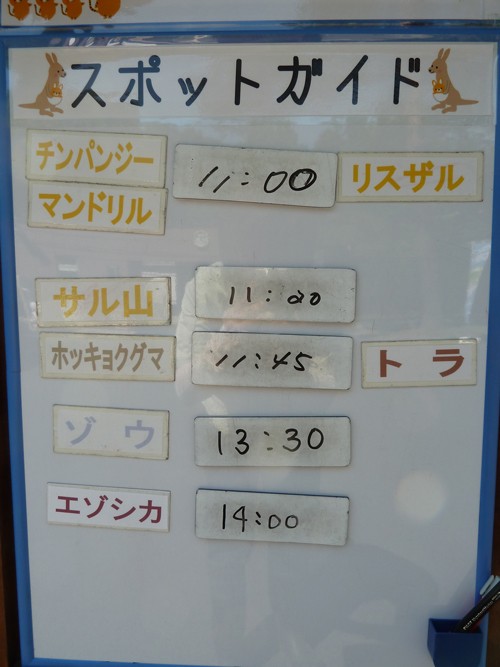 スポットガイド
チンパンジー 11:00 リスザル
マンドリル
サル山 11:20
ホッキョクグマ 11:45 トラ
ゾウ 13:30
エゾシカ 14:00